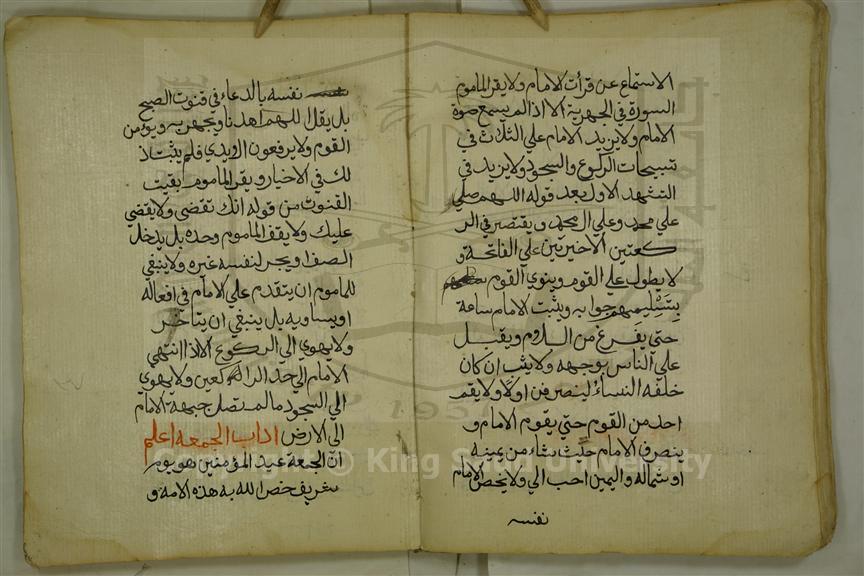 الاستماع عن قرأت الامام ولا يقرا الماموم
السورة في الجهرية الا اذا لم يسمع صوة
الامام ولا يزيد الامام علي الثلاث في
تسبيحات الركوع والسجود ولا يزيد في
التشهد الاول بعد قوله اللهم صلي
علي محمد وعلي ال محمد ويقتصر في الر
كعتين الاخيرتين علي الفاتحة و
لا يطول علي القوم وينوي القوم
بتسليمهم جوابه ويثبت الامام ساعة
حتي يفرغ من السلام ويقبل
علي الناس بوجهه ولا يثب ان كان
خلفه النساء لينصرفن اولا ولا يقم
احد من القوم حتي يقوم الامام و
ينصرف الامام حيث يشاء من يمينه
او شماله واليمين احب الي ولا يخص الامام
نفسه
نفسه بالدعاء في قنوت الصبح
بل يقل اللهم اهدنا ويجهر به ويؤمن
القوم ولا يرفعون الايدي فلم يثبت ذ
لك في الاخبار ويقرا الماموم بقيت
القنوت من قوله انك تقضي ولا يقضي
عليك ولا يقف الماموم وحده بل يدخل
الصف او يجر لنفسه غيره ولا ينبغي
للماموم ان يتقدم علي الامام في افعاله
او يساويه بل ينبغي ان يتاخر
ولا يهوي الي الركوع الا اذا انتهي
الامام الي حد الراكعين ولا يهوي
الي السجود ما لم تصل جبهة الامام
الي الارض اداب الجمعه اعلم
ان الجمعة عيد المؤمنين هو يوم
شريف خص الله به هذه الامه و
Copyright © King Saud University
1957